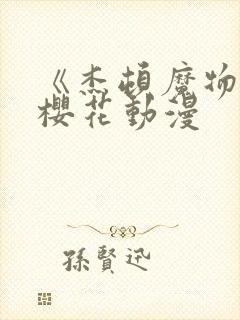 《杰頓魔物
櫻花動漫
孫賢迅